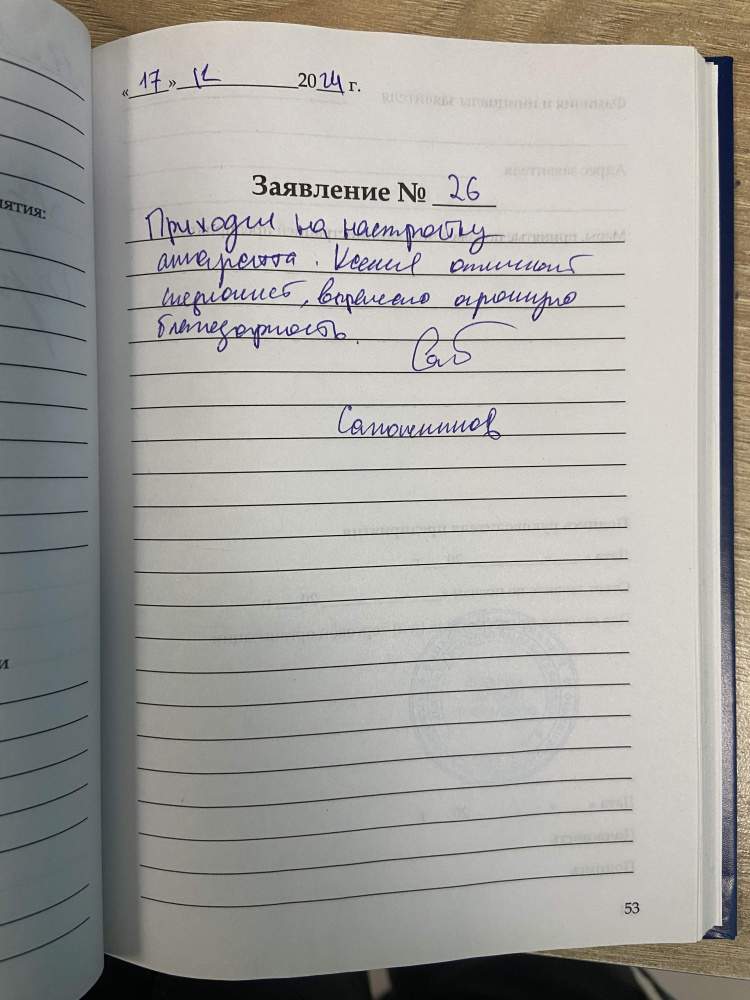 «17» 12 2024 г.
Заявление № 26
Приходил на настройку
аппарата. Ксения отличный
специалист, выражаю огромную
благодарность.
Сапожников
ятия:
и
53